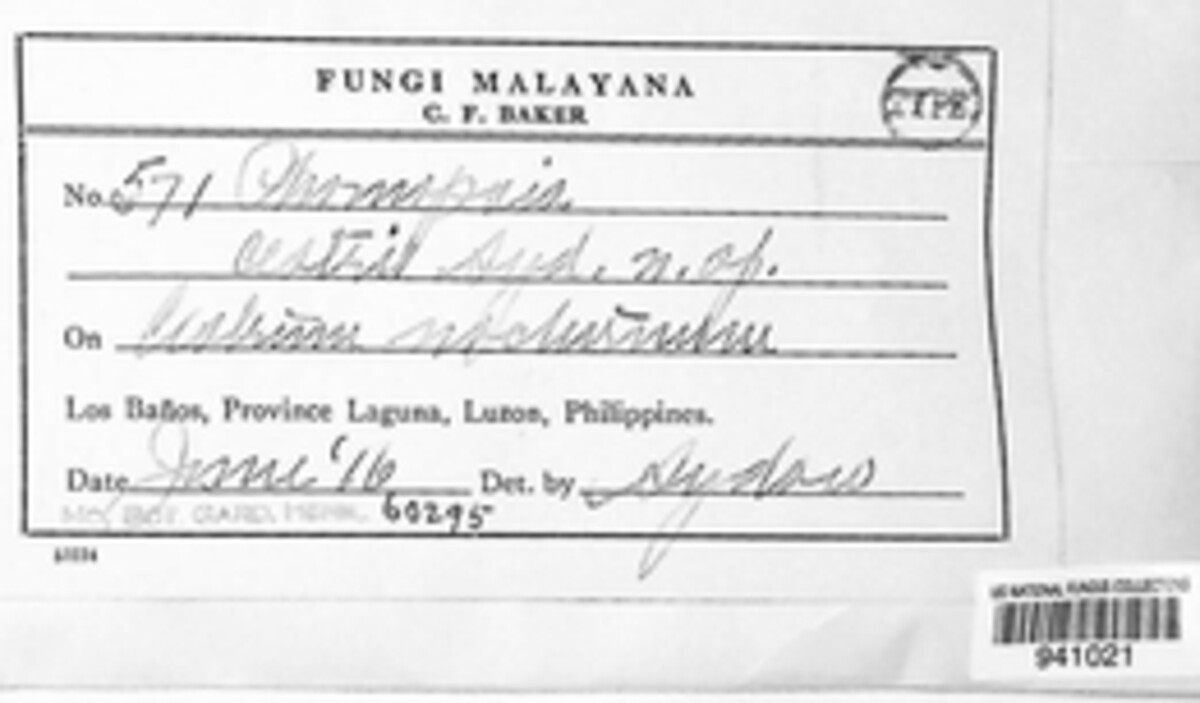 FUNGI MALAYANA
C. F. BAKER
TYPE
No. 571 Phomopsis
cestri Syd. n. sp.
On Cestrum nocturnum
Los Baños, Province Laguna, Luzon, Philippines.
Date June '16 Det. by Sydow
MO. BOT. GARD. HERB. 60295
US NATIONAL FUNGUS COLLECTIONS
941021